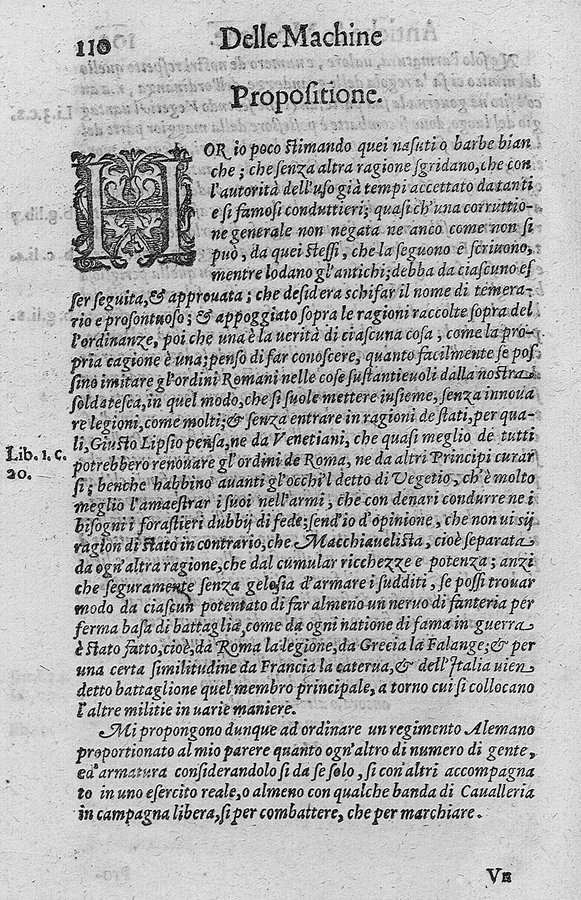 110
Delle Machine
Propositione.
HOR io poco ſtimando quei naſuti o barbe bian
che; che ſenza altra ragione sgridano, che con
l'autorità dell'uſo già tempi accettato da tanti
e ſi famoſi conduttieri; quaſi ch'una corruttio-
ne generale non negata ne anco come non ſi
può, da quei ſteſſi, che la ſeguono e ſcriuono,
mentre lodano gl'antichi; debba da ciaſcuno eſ
ſer ſeguita, & approuata; che deſidera ſchifar il nome di temera-
rio e proſontuoſo; & appoggiato ſopra le ragioni raccolte ſopra del
l'ordinanze, poi che una è la verità di ciaſcuna coſa, come la pro-
pria cagione è una; penſo di far conoſcere, quanto facilmente ſe poſ
ſino imitare gl'ordini Romani nelle coſe ſuſtantieuoli dalla noſtra
ſoldateſca, in quel modo, che ſi ſuole mettere inſieme, ſenza innoua
re legioni, come molti; & ſenza entrare in ragioni de ſtati, per qua-
li, Giuſto Lipſio penſa, ne da Venetiani, che quaſi meglio de tutti
Lib. 1. c.
20.
potrebbero renouare gl'ordini de Roma, ne da altri Principi curar
ſi; benche habbino auanti gl'occhi'l detto di Vegetio, ch'è molto
meglio l'amaeſtrar i ſuoi nell'armi, che con denari condurre ne i
biſogni i foraſtieri dubbij di fede; ſend'io d'opinione, che non ui sij
ragion di ſtato in contrario, che Macchiaueliſta, cioè ſeparata
da ogn'altra ragione, che dal cumular ricchezze e potenza; anzi
che ſeguramente ſenza geloſia d'armare i ſudditi, ſe poſſi trouar
modo da ciaſcun potentato di far almeno un neruo di fanteria per
ferma baſa di battaglia, come da ogni natione di fama in guerra
è ſtato fatto, cioè, da Roma la legione, da Grecia la Falange; & per
una certa ſimilitudine da Francia la caterua, & dell'Italia uien
detto battaglione quel membro principale, a torno cui ſi collocano
l'altre militie in varie maniere.
Mi propongono dunque ad ordinare un regimento Alemano
proportionato al mio parere quanto ogn'altro di numero di gente,
ed'armatura conſiderandolo ſi da ſe ſolo, ſi con'altri accompagna
to in uno eſercito reale, o almeno con qualche banda di Cauallería
in campagna libera, ſi per combattere, che per marchiare.
Vn